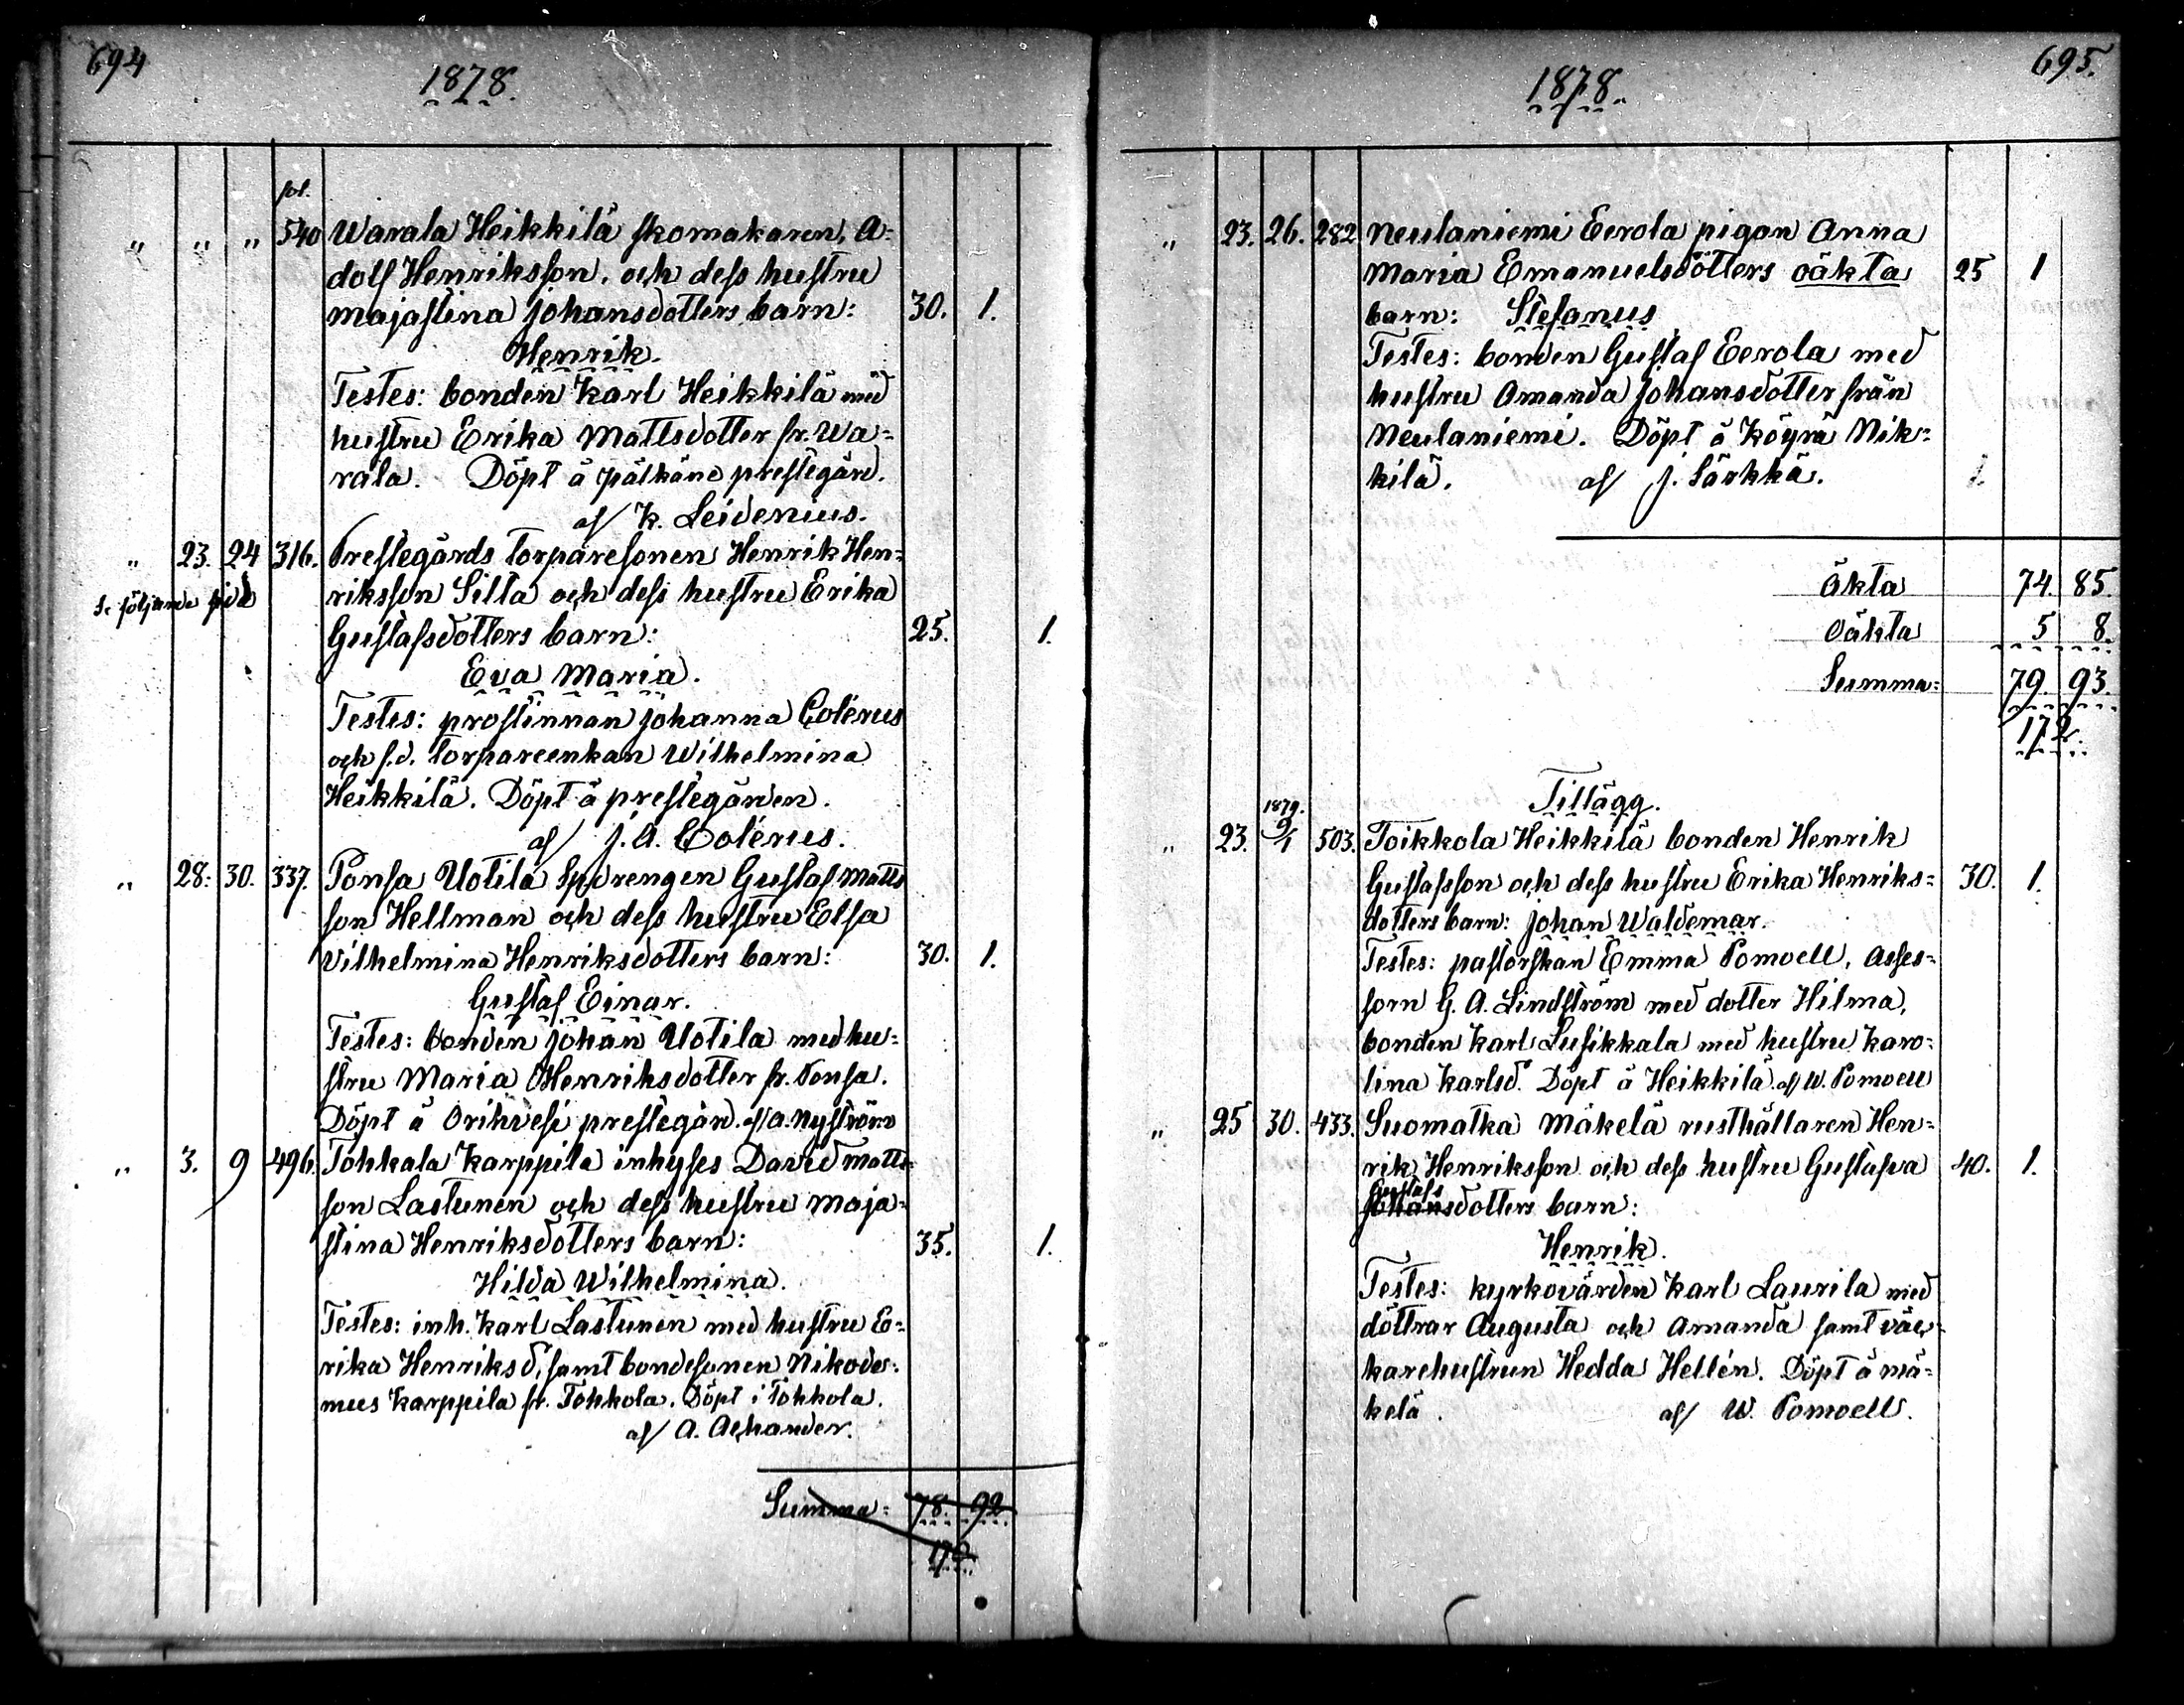 694
1878.
fol.
" " " 540 Warala Heikkilä skomakaren, A=
dolf Henriksson, och dess hustru
Majastina Johansdotters barn: 30. 1.
Henrik.
Testes: bonden Karl Heikkilä med
hustru Erika Mattsdotter fr. Wa=
rala. Döpt å Pälkäne prestegård.
af K. Leidenius.
" 23. 24 316. Prestegårds torparesonen Henrik Hen=
Se följande sid riksson Silla och dess hustru Erika
Gustafsdotters barn: 25. 1.
Eva Maria.
Testes: prostinnan Johanna Colérus
och f.d. torpareenkan Wilhelmina
Heikkilä. Döpt å prestegården.
af J. A. Colérus.
" 28. 30. 337. Ponsa Uotila Spdrengen Gustaf Matts
son Hellman och dess hustru Elsa
Vilhelmina Henriksdotters barn: 30. 1.
Gustaf Einar.
Testes: bonden Johan Uotila med hu=
stru Maria Henriksdotter fr. Ponsa.
Döpt å Orihvesi prestegård. af A. Nyström
" 3. 9 496. Tohkala Karppila inhyses David Matts=
son Lastunen och dess hustru Maja=
stina Henriksdotters barn: 35. 1.
Hilda Wilhelmina.
Testes: inh. Karl Lastunen med hustru E=
rika Henriksd, samt bondesonen Nikode=
mus Karppila fr. Tohkola. Döpt i Tohkola.
af A. Achander.
Summa= 78. 92.
170.
695.
1878.
" 23. 26. 282 Neulaniemi Eerola pigan Anna
Maria Emanuelsdotters oäkta 25 1
barn: Stefanus
Testes: bonden Gustaf Eerola med
hustru Amanda Johansdotter från
Neulaniemi. Döpt å Köyrä Nik=
kilä. af J. Särkkä. 1.
Äkta 74. 85.
Oäkta 5 8.
Summa= 79. 93.
172.
Tillägg.
1879.
" 23. 9/1 503. Toikkola Heikkilä bonden Henrik
Gustafsson och dess hustru Erika Henriks= 30. 1.
dotters barn: Johan Waldemar.
Testes: pastorskan Emma Pomoell, Asses=
sorn G. A. Lindström med dotter Hilma,
bonden Karl Lusikkala med hustru Karo=
lina Karlsd. Döpt å Heikkilä af W. Pomoell
" 25 30. 433. Suomatka Mäkelä rusthållaren Hen=
rik Henriksson och dess hustru Gustafva 40. 1.
Gustafs
Johansdotters barn:
Henrik.
Testes: kyrkovärden Karl Laurila med
döttrar Augusta och Amanda samt väf=
karehustrun Hedda Hellén. Döpt å Mä=
kelä. af W. Pomoell.